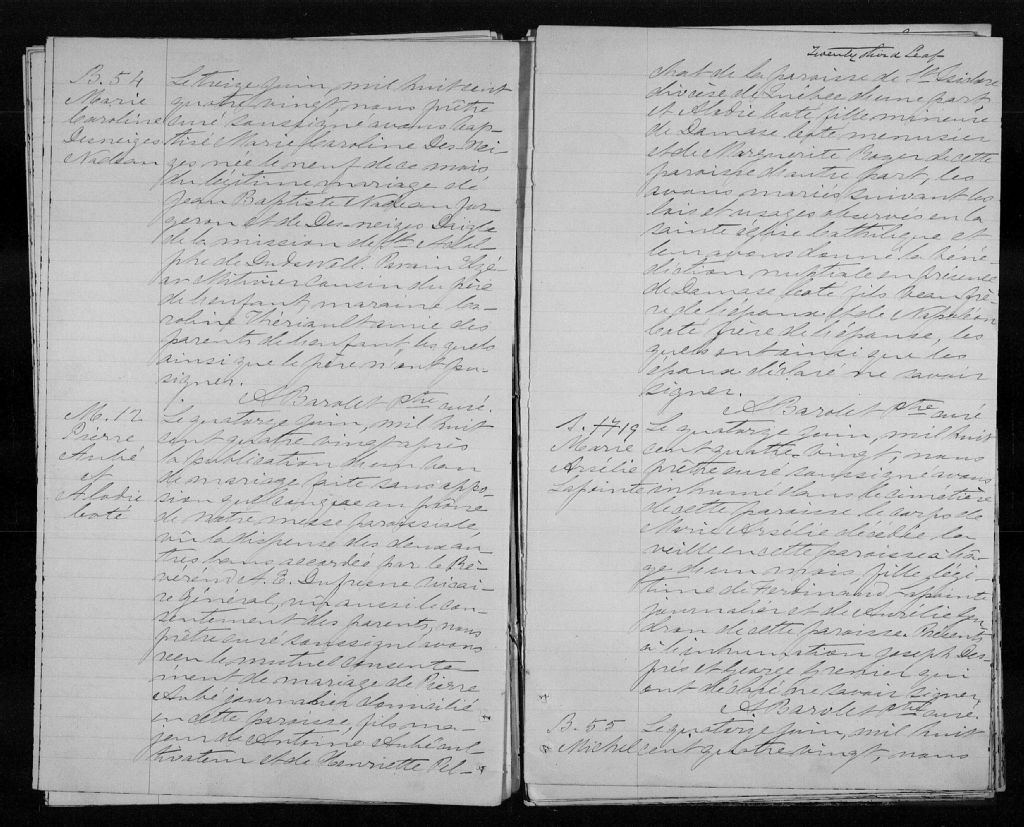 B. 54
Marie
Caroline
Desneiges
Nadeau
Le treize juin, mil huit cent
quatre vingt, nous prêtre
curé soussigné avons bap-
tisé Marie Caroline Des Nei-
ges née le neuf de ce mois
du légitime mariage de
Jean Baptiste Nadeau for-
geron et de Des-neiges Daigle
de la mission de St Adol-
phe de Dudswell. Parain Elzé-
ar Métivier cousin du père
de l'enfant, maraine Ca-
roline Thériault amie des
parents de l'enfant les quels
ainsi que le père n'ont pu
signer.
A Barolet Ptre curé.
M. 12
Pierre
Aubé
et
Alodie
Coté
Le quatorze juin, mil huit
cent quatre vingt après
la publication d'un ban
de mariage faite sans oppo-
sion que conque au prône
de notre messe paroissiale,
vû la dispense des deux au-
tres bans accordée par le Ré-
verend A. E. Dufresne vicai-
re général, vû aussi le con-
sentement des parents, nous
prêtre curé soussigné avons
reçu le mutuel consente-
ment de mariage de Pierre
Aubé journalier domicilié
en cette paroisse, fils ma-
jeur de Antoine Aubé cul-
tivateur et de Henriette Pel-
Twenty third Leaf
chat de la paroisse de St Isidore
diocèse de Québec d'une part
et Alodie Coté, fille mineure
de Damase Coté menusier
et de Marguerite Roger de cette
paroisse d'autre part, les
avons mariés suivant les
lois et usages observés en la
sainte église Catholique et
leur avons donné la béné-
diction nuptiale en présence
de Damase Coté fils beau frè-
re de l'époux et de Napoléon
Coté frère de l'épouse, les
quels ont ainsi que les
époux déclaré ne savoir
signer.
A Barolet Ptre curé
S. 17 19
Marie
Arsélie
Lapointe
Le quatorze juin, mil huit
cent quatre-vingt, nous
prêtre curé soussigné avons
inhumé dans le cimetière
de cette paroisse le corps de
Marie Arsélie décédée la
veille en cette paroisse a l'â-
ge d'un mois, fille légi-
time de Ferdinand Lapointe
journalier et de Aurélie Gen-
dron de cette paroisse. Présents
a l'inhumation Joseph Des-
prés et George Grenier qui
ont déclaré ne savoir signer,
A Barolet Ptre curé.
B. 55
Michel
Le quatorze juin, mil huit
cent quatre vingt, nous